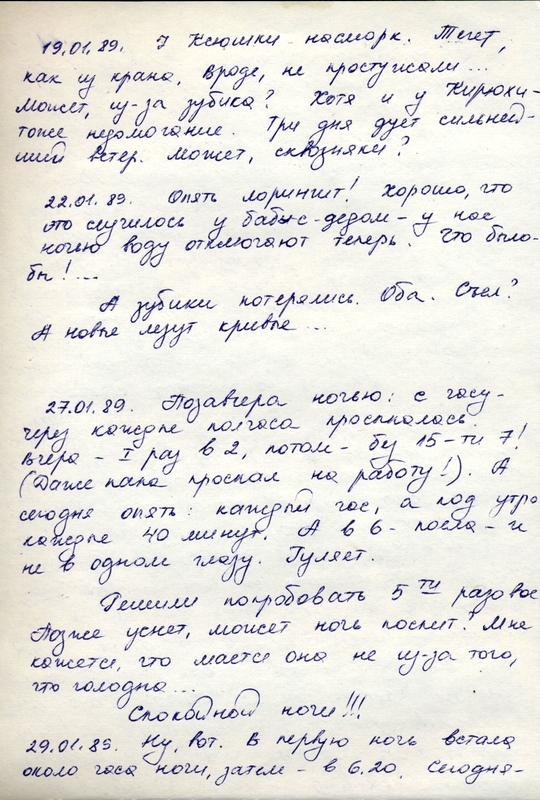 19.01.89. У Ксюшки насморк. Течет,
как из крана, вроде, не простужали...
Может, из-за зубика? Хотя и у Кирюхи-
тоже недомогание. Три дня дует сильней-
ший ветер. Может, сквозняки?
22.01.89. Опять ларингит! Хорошо, что
это случилось у бабы с дедом - у нас
ночью воду отключают теперь. Что было-
бы!...
А зубики потерялись. Оба. Съел?
А новые лезут кривые...
27.01.89. Позавчера ночью: с часу-
через каждые полчаса просыпалась.
Вчера - I раз в 2, потом - без 15-ти 7!
(Даже папа проспал на работу!). А
сегодня опять: каждый час, а под утро
каждые 40 минут. А в 6 - поела - и
не в одном глазу. Гуляет.
Решили попробовать 5ти разовое
Позже уснет, может ночь поспит? Мне
кажется, что мается она не из-за того,
что голодна...
Спокойной ночи!!!
29.01.89. Ну, вот. В первую ночь встала
около часа ночи, затем - в 6.20. Сегодня-